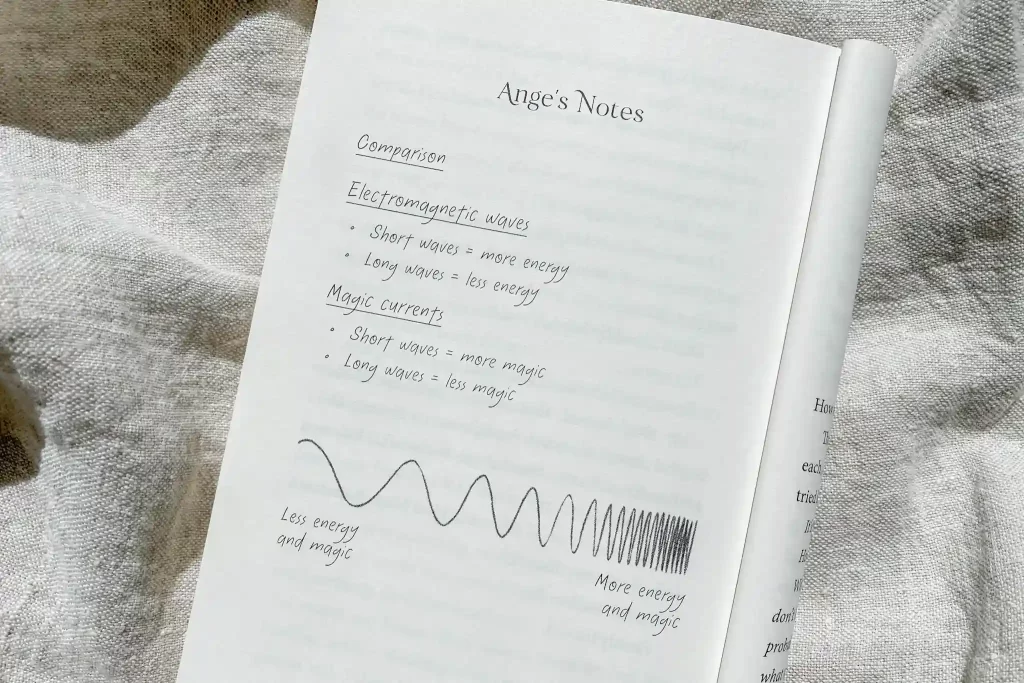 Ange's Notes
Comparison
Electromagnetic waves
• Short waves = more energy
• Long waves = less energy
Magic currents
• Short waves = more magic
• Long waves = less magic
Less energy
and magic
More energy
and magic
How
each
tried
don't
what